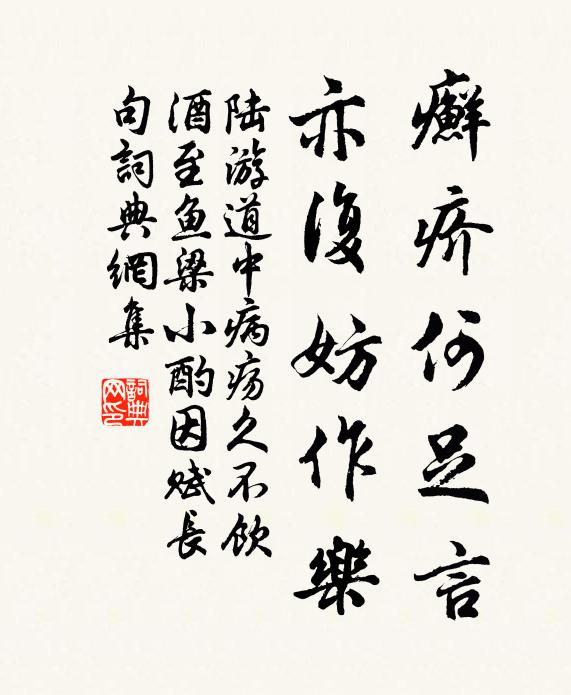 癣疥何足言
亦復妨作樂
陆游道中病疡久不飲
酒至鱼梁小酌因赋長
句詞典網集
詞典
网印